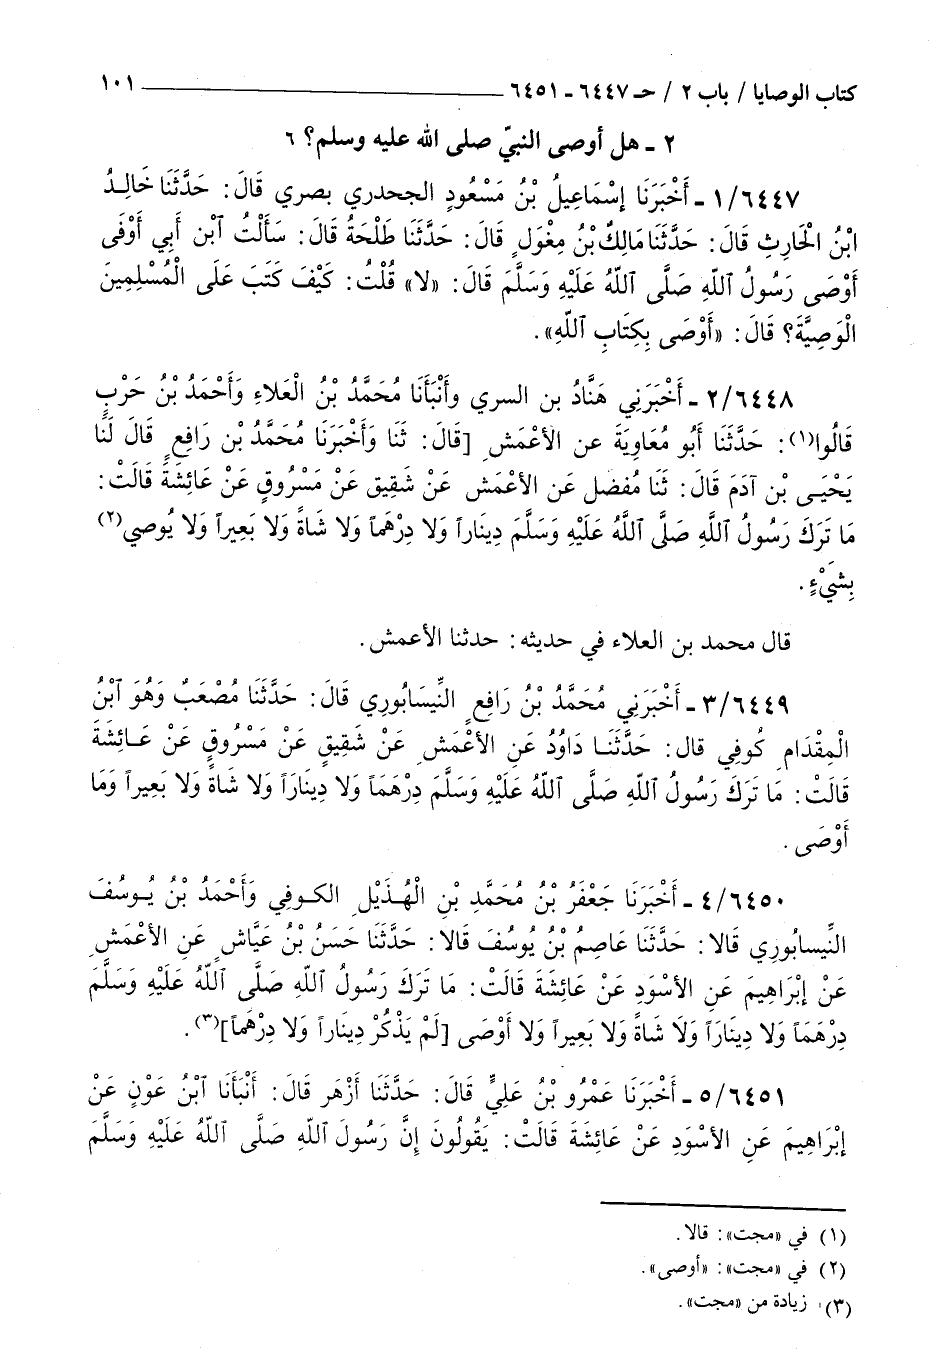 كتاب الوصايا / باب ٢ / حـ ٦٤٤٧ ـ ٦٤٥١ ١٠١
٢ ـ هل أوصى النبيّ صلى الله عليه وسلم؟ ٦
١/٦٤٤٧ ـ أَخْبَرَنَا إِسْمَاعِيلُ بْنُ مَسْعُودٍ الجحدري بصري قَالَ: حَدَّثَنَا خَالِدُ
ابْنُ الْحَارِثِ قَالَ: حَدَّثَنَا مَالِكُ بْنُ مِغْوَلٍ قَالَ: حَدَّثَنَا طَلْحَةُ قَالَ: سَأَلْتُ ٱبْن أَبِي أَوْفَى
أَوْصَى رَسُولُ ٱللّٰهِ صَلَّى ٱللّٰهُ عَلَيْهِ وَسَلَّمَ قَالَ: «لا» قُلْتُ: كَيْفَ كَتَبَ عَلَى الْمُسْلِمِينَ
الْوَصِيَّةَ؟ قَالَ: «أَوْصَى بِكِتَابِ ٱللّٰهِ».
٢/٦٤٤٨ ـ أَخْبَرَنِي هَنَّادُ بن السري وأَنْبَأَنَا مُحَمَّدُ بْنُ الْعَلاءِ وَأَحْمَدُ بْنُ حَرْبٍ
قَالُوا(١): حَدَّثَنَا أَبُو مُعَاوِيَةَ عن الأَعْمَشِ [قَالَ: ثَنَا وَأَخْبَرَنَا مُحَمَّدُ بْن رَافِعٍ قَالَ لَنَا
يَحْيَـى بْن آدَمَ قَالَ: ثَنَا مُفضل عَن الأَعْمَشِ عَنْ شَقِيق عَنْ مَسْرُوقٍ عَنْ عَائِشَةَ قَالَتْ:
مَا تَرَكَ رَسُولُ ٱللَّهِ صَلَّى ٱللَّهُ عَلَيْهِ وَسَلَّمَ دِينَاراً وَلا دِرْهَماً وَلا شَاةً وَلا بَعِيراً وَلا يُوصِي(٢)
بِشَيْءٍ.
قال محمد بن العلاء في حديثه: حدثنا الأعمش.
٣/٦٤٤٩ ـ أَخْبَرَنِي مُحَمَّدُ بْنُ رَافِعٍ النِّيسَابُوري قَالَ: حَدَّثَنَا مُصْعَبٌ وَهُوَ ٱبْنُ
الْمِقْدَامِ كُوفِي قال: حَدَّثَنَـا دَاوُدُ عَنِ الأَعْمَشِ عَنْ شَقِيقٍ عَنْ مَسْرُوقٍ عَنْ عَـائِشَةَ
قَالَتْ: مَا تَرَكَ رَسُولُ ٱللّٰهِ صَلَّى ٱللّٰهُ عَلَيْهِ وَسَلَّمَ دِرْهَمَاً وَلا دِينَارَاً وَلا شَاةً وَلا بَعِيراً وَمَا
أَوْصَى.
٤/٦٤٥٠ ـ أَخْبَرَنَا جَعْفَرُ بْنُ مُحَمَّدِ بْنِ الْهُـذَيْلِ الكـوفي وَأَحْمَدُ بْنُ يُـوسُفَ
النِّيسابُوري قَالا: حَدَّثَنَا عَاصِمُ بْنُ يُوسُفَ قَالا: حَدَّثَنَا حَسَنُ بْنُ عَيَّاشٍ عَنِ الأَعْمَشِ
عَنْ إِبْرَاهِيمَ عَنِ الأَسْوَدِ عَنْ عَائِشَةَ قَالَتْ: مَا تَرَكَ رَسُولُ ٱللّٰهِ صَلَّى ٱللّٰهُ عَلَيْهِ وَسَلَّمَ
دِرْهَمَاً وَلا دِينَارَاً وَلَا شَاةً وَلا بَعِيراً وَلا أَوْصَى [لَمْ يَذْكُرْ دِينَاراً وَلا دِرْهَماً](٣).
٥/٦٤٥١ ـ أَخْبَرَنَا عَمْرُو بْنُ عَلِيٍّ قَالَ: حَدَّثَنَا أَزْهَر قَالَ: أَنْبَأَنَا ٱبْنُ عَوْنٍ عَنْ
إِبْرَاهِيمَ عَنِ الأَسْوَدِ عَنْ عَائِشَةَ قَالَتْ: يَقُولُونَ إِنَّ رَسُولَ ٱللّٰهِ صَلَّى ٱللّٰهُ عَلَيْهِ وَسَلَّمَ
(١) في «مجت»: قالا.
(٢) في «مجت»: «أوصى».
(٣) زيادة من «مجت».